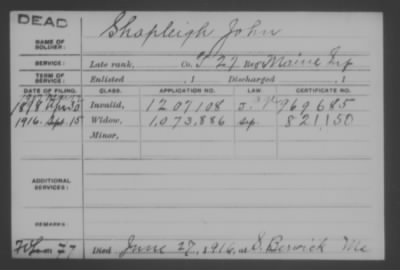 DEAD
NAME OF SOLDIER: Shapleigh John
SERVICE: Late rank, Co. 27 Reg Maine Inf
TERM OF SERVICE: Enlisted , 1 Discharged , 1
DATE OF FILING. CLASS. APPLICATION NO. LAW. CERTIFICATE NO.
Invalid, 1207108 969685
1916. 15 Widow, 1,073,886 821,150
Minor,
ADDITIONAL SERVICES:
REMARKS:
77 Died June 27, 1916, at S. Berwick Me